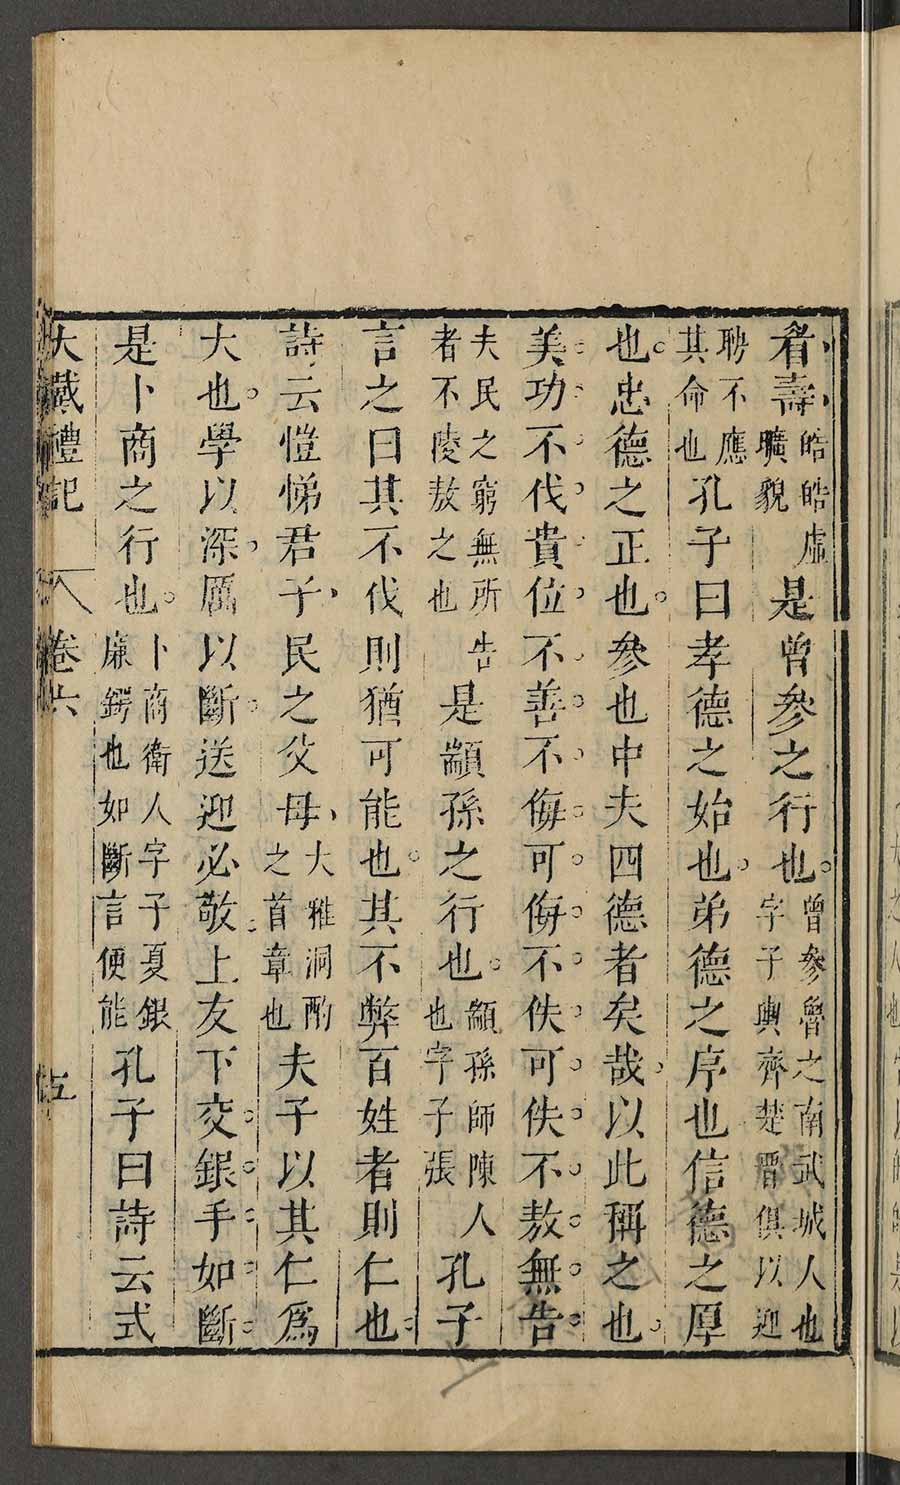 者壽皓皓虛曠貌是曾參之行也曾參魯之南武城人也字子輿齊楚晉俱以迎
聘不應其命也孔子曰孝德之始也弟德之序也信德之厚
也忠德之正也參也中夫四德者矣哉以此稱之也
美功不伐貴位不善不侮可侮不佚可佚不敖無告
夫民之窮無所告者不陵敖之也是顓孫之行也顓孫師陳人也字子張孔子
言之曰其不伐則猶可能也其不弊百姓者則仁也
詩云愷悌君子民之父母大雅洞酌之首章也夫子以其仁爲
大也學以深厲以斷送迎必敬上友下交銀手如斷
是卜商之行也卜商衛人字子夏銀廉鍔也如斷言便能孔子曰詩云式
大戴禮記 卷六 五